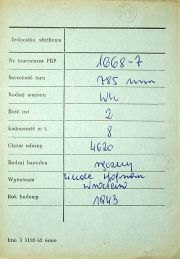 Jednostka służbowa
Nr inwentarza PKP 1668-7
Szerokość toru 785 mm
Rodzaj wagonu Wk
Ilość osi 2
Ładowność w t. 8
Ciężar własny 4620
Rodzaj hamulca ręczny
Wytwórnia Linke Hofman
Wrocław
Rok budowy 1943